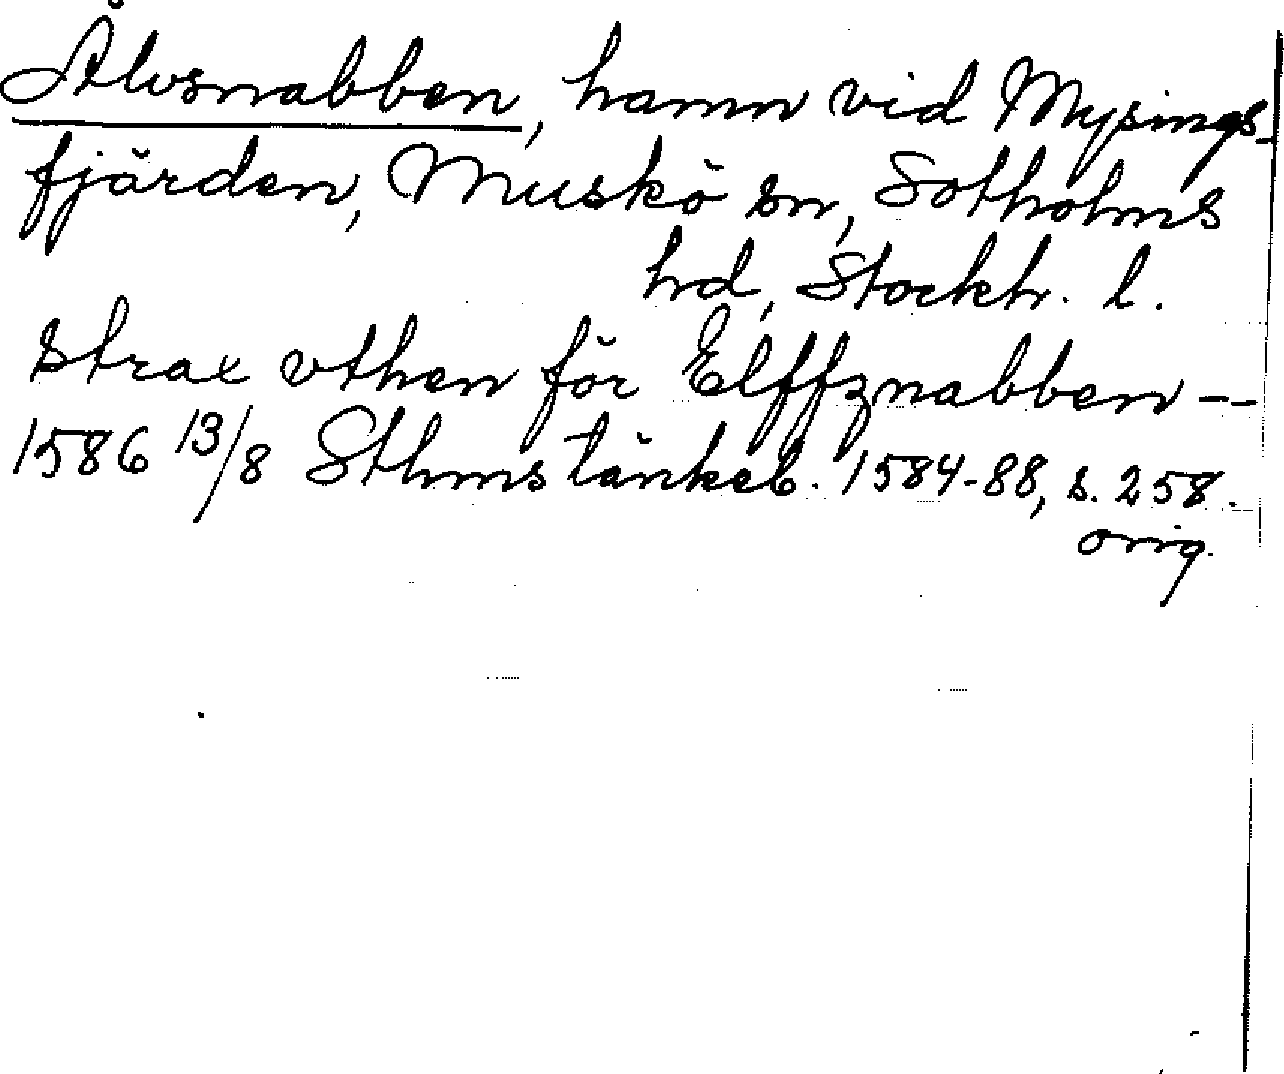 Älvsnabben, hamn vid Mysings-
fjärden, Muskö sn, Sotholms
hd, Stockh. l.
strax vthen för Elffznabben --
1586 13/8 Sthms tänkeb. 1584-88, s. 258.
orig.